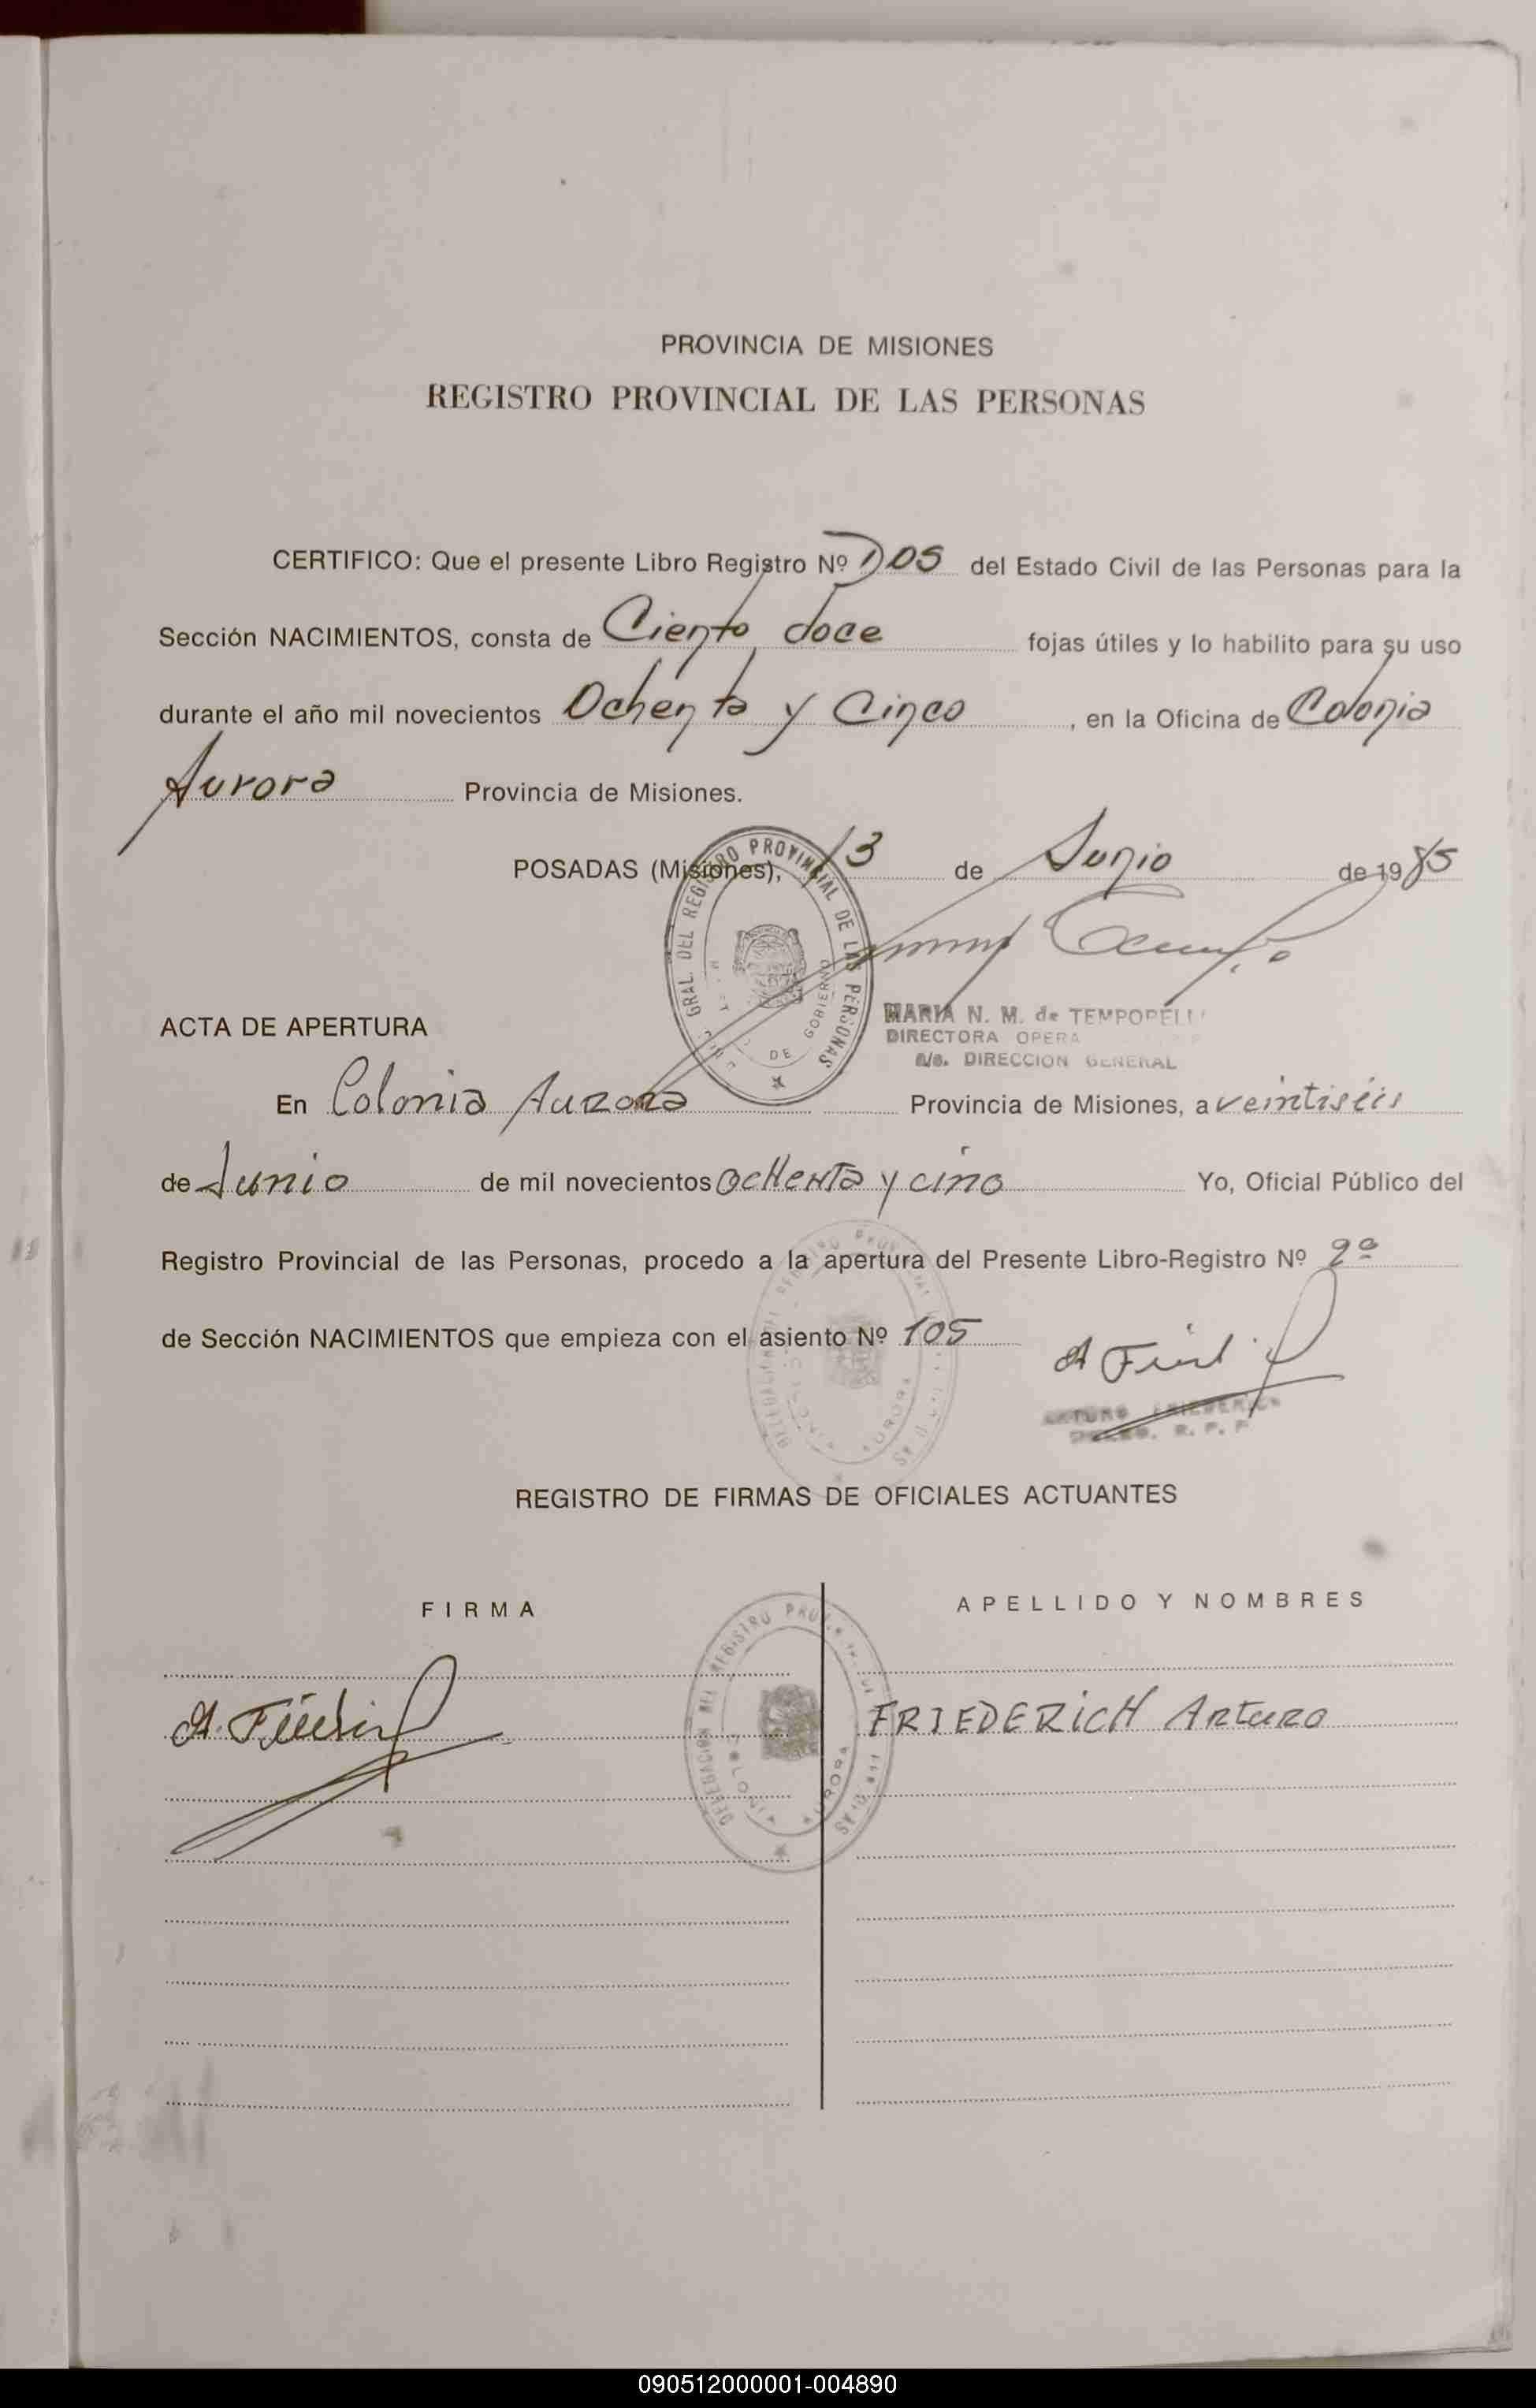 PROVINCIA DE MISIONES
REGISTRO PROVINCIAL DE LAS PERSONAS
CERTIFICO: Que el presente Libro Registro Nº DOS del Estado Civil de las Personas para la
Sección NACIMIENTOS, consta de Ciento doce fojas útiles y lo habilito para su uso
durante el año mil novecientos Ochenta y Cinco, en la Oficina de Colonia
Aurora Provincia de Misiones.
POSADAS (Misiones), 13 de Junio de 1985
GRAL. DEL REGISTRO PROVINCIAL DE LAS PERSONAS
DE GOBIERNO
MARIA N. M. de TEMPOPELL
DIRECTORA OPERA
a/c. DIRECCION GENERAL
ACTA DE APERTURA
En Colonia Aurora Provincia de Misiones, a veintiséis
de Junio de mil novecientos ocHenta y cino Yo, Oficial Público del
Registro Provincial de las Personas, procedo a la apertura del Presente Libro-Registro Nº 2º
de Sección NACIMIENTOS que empieza con el asiento Nº 105
ARTURO FRIEDERICH
R. P. P
REGISTRO DE FIRMAS DE OFICIALES ACTUANTES
FIRMA
APELLIDO Y NOMBRES
DELEGACION DEL REGISTRO
COLONIA AURORA
FRIEDERICH Arturo
090512000001-004890